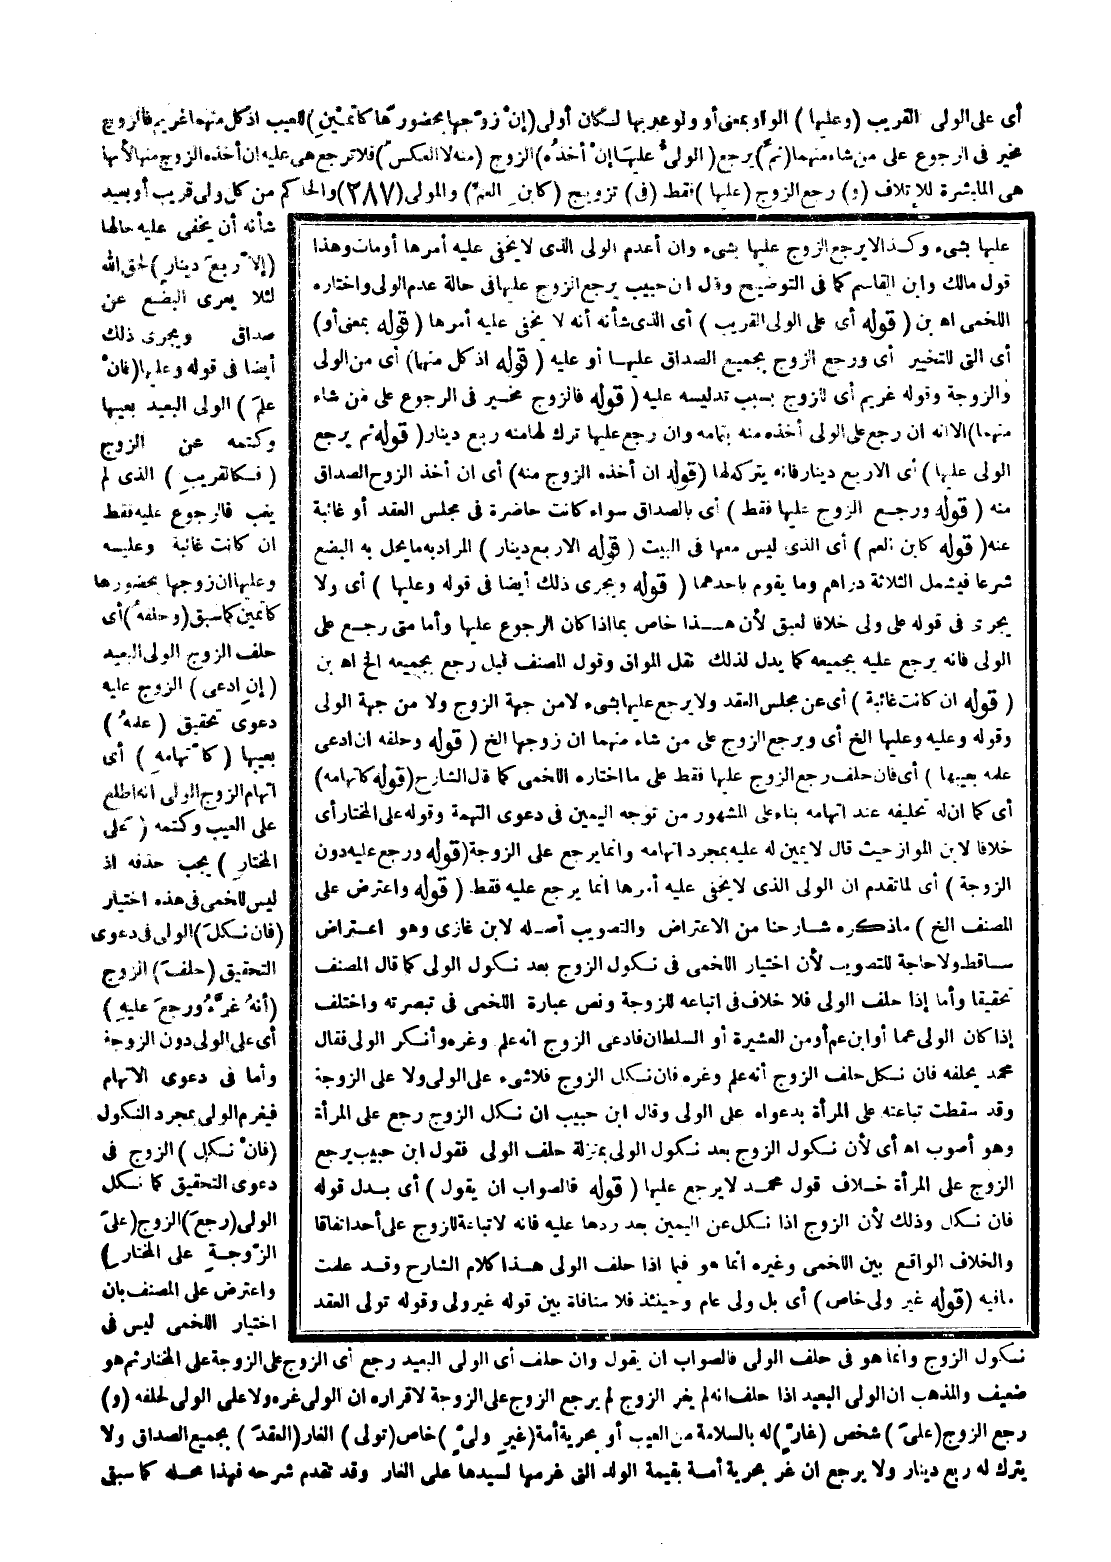 أى على الولى القريب (وعليها) الواو بمعنى أو ولو عبر بها لكان أولى (إن زوّجها بحضورها كاتمين) للعيب اذ كل منهما غريم فالزوج
مخير فى الرجوع على من شاء منهما (ثمّ) يرجع (الولىُّ عليها إن أخذهُ) الزوج (منه لا العكس) فلا ترجع هى عليه ان أخذه الزوج منها لأنها
هى المباشرة للإتلاف (و) رجع الزوج (عليها) فقط (فى) تزويج (كابن العم) والمولى (٢٨٧) والحاكم من كل ولى قريب أو بعيد
شأنه أن يخفى عليه حالها
(إلا ربعَ دينارٍ) لحق الله
لئلا يعرى البضع عن
صداق ويجرى ذلك
أيضا فى قوله وعليها (فان
علمَ) الولى البعيد بعيبها
وكتمه عن الزوج
(فكالقريبِ) الذى لم
يغب فالرجوع عليه فقط
ان كانت غائبة وعليه
وعليها ان زوجها بحضورها
كاتمين كما سبق (وحلفهُ) أى
حلف الزوج الولى البعيد
(إن ادعى) الزوج عليه
دعوى تحقيق (علمهُ)
بعيبها (كاتهامهِ) أى
اتهام الزوج الولى انه اطلع
على العيب وكتمه (على
المختار) يجب حذفه اذ
ليس للخمى فى هذه اختيار
(فان نكلَ) الولى فى دعوى
التحقيق (حلفَ) الزوج
(أنهُ غرَّهُ ورجعَ عليهِ)
أى على الولى دون الزوجة
وأما فى دعوى الاتهام
فيغرم الولى بمجرد النكول
(فانْ نكل) الزوج فى
دعوى التحقيق كما نكل
الولى (رجعَ) الزوج (علىَ
الزّوجةِ على المختار)
واعترض على المصنف بان
اختيار اللخمى ليس فى
عليها بشىء وكذا لا يرجع الزوج عليها بشىء وان أعدم الولى الذى لا يخفى عليه أمرها أو مات وهذا
قول مالك وابن القاسم كما فى التوضيح وقال ابن حبيب يرجع الزوج عليها فى حالة عدم الولى واختاره
اللخمى اه بن (قوله أى على الولى القريب) أى الذى شأنه أنه لا يخفى عليه أمرها (قوله بمعنى أو)
أى التى للتخيير أى ورجع الزوج بجميع الصداق عليها أو عليه (قوله اذ كل منهما) أى من الولى
والزوجة وقوله غريم أى للزوج بسبب تدليسه عليه (قوله فالزوج مخير فى الرجوع على من شاء
منهما) الا انه ان رجع على الولى أخذه منه بتمامه وان رجع عليها ترك لها منه ربع دينار (قوله ثم يرجع
الولى عليها) أى الا ربع دينار فانه يتركه لها (قوله ان أخذه الزوج منه) أى ان أخذ الزوج الصداق
منه (قوله ورجع الزوج عليها فقط) أى بالصداق سواء كانت حاضرة فى مجلس العقد أو غائبة
عنه (قوله كابن العم) أى الذى ليس معها فى البيت (قوله الا ربع دينار) المراد به ما يحل به البضع
شرعا فيشمل الثلاثة دراهم وما يقوم باحدهما (قوله ويجرى ذلك أيضا فى قوله وعليها) أى ولا
يجرى فى قوله على ولى خلافا لعبق لأن هذا خاص بما اذا كان الرجوع عليها وأما متى رجع على
الولى فانه يرجع عليه بجميعه كما يدل لذلك نقل المواق وقول المصنف قبل رجع بجميعه الخ اه بن
(قوله ان كانت غائبة) أى عن مجلس العقد ولا يرجع عليها بشىء لا من جهة الزوج ولا من جهة الولى
وقوله وعليه وعليها الخ أى ويرجع الزوج على من شاء منهما ان زوجها الخ (قوله وحلفه ان ادعى
علمه بعيبها) أى فان حلف رجع الزوج عليها فقط على ما اختاره اللخمى كما قال الشارح (قوله كاتهامه)
أى كما ان له تحليفه عند اتهامه بناء على المشهور من توجه اليمين فى دعوى التهمة وقوله على المختار أى
خلافا لابن المواز حيث قال لا يمين له عليه بمجرد اتهامه وانما يرجع على الزوجة (قوله ورجع عليه دون
الزوجة) أى لما تقدم ان الولى الذى لا يخفى عليه أمرها انما يرجع عليه فقط (قوله واعترض على
المصنف الخ) ما ذكره شارحنا من الاعتراض والتصويب أصله لابن غازى وهو اعتراض
ساقط ولا حاجة للتصويب لأن اختيار اللخمى فى نكول الزوج بعد نكول الولى كما قال المصنف
تحقيقا وأما إذا حلف الولى فلا خلاف فى اتباعه للزوجة ونص عبارة اللخمى فى تبصرته واختلف
إذا كان الولى عما أو ابن عم أو من العشيرة أو السلطان فادعى الزوج انه علم وغره وأنكر الولى فقال
محمد يحلفه فان نكل حلف الزوج أنه علم وغره فان نكل الزوج فلا شىء على الولى ولا على الزوجة
وقد سقطت تباعته على المرأة بدعواه على الولى وقال ابن حبيب ان نكل الزوج رجع على المرأة
وهو أصوب اه أى لأن نكول الزوج بعد نكول الولى بمنزلة حلف الولى فقول ابن حبيب يرجع
الزوج على المرأة خلاف قول محمد لا يرجع عليها (قوله فالصواب ان يقول) أى بدل قوله
فان نكل وذلك لأن الزوج اذا نكل عن اليمين بعد ردها عليه فانه لا تباعة للزوج على أحد اتفاقا
والخلاف الواقع بين اللخمى وغيره انما هو فيما اذا حلف الولى هذا كلام الشارح وقد علمت
مافيه (قوله غير ولى خاص) أى بل ولى عام وحينئذ فلا منافاة بين قوله غير ولى وقوله تولى العقد
نكول الزوج وانما هو فى حلف الولى فالصواب ان يقول وان حلف أى الولى البعيد رجع أى الزوج على الزوجة على المختار ثم هو
ضعيف والمذهب ان الولى البعيد اذا حلف انه لم يغر الزوج لم يرجع الزوج على الزوجة لاقراره ان الولى غره ولا على الولى لحلفه (و)
رجع الزوج (علىَ) شخص (غارٍّ) له بالسلامة من العيب أو بحرية أمة (غيرِ ولىٍّ) خاص (تولى) الغار (العقدَ) بجميع الصداق ولا
يترك له ربع دينار ولا يرجع ان غر بحرية أمة بقيمة الولد التى غرمها لسيدها على الغار وقد تقدم شرحه فهذا محله كما سبق